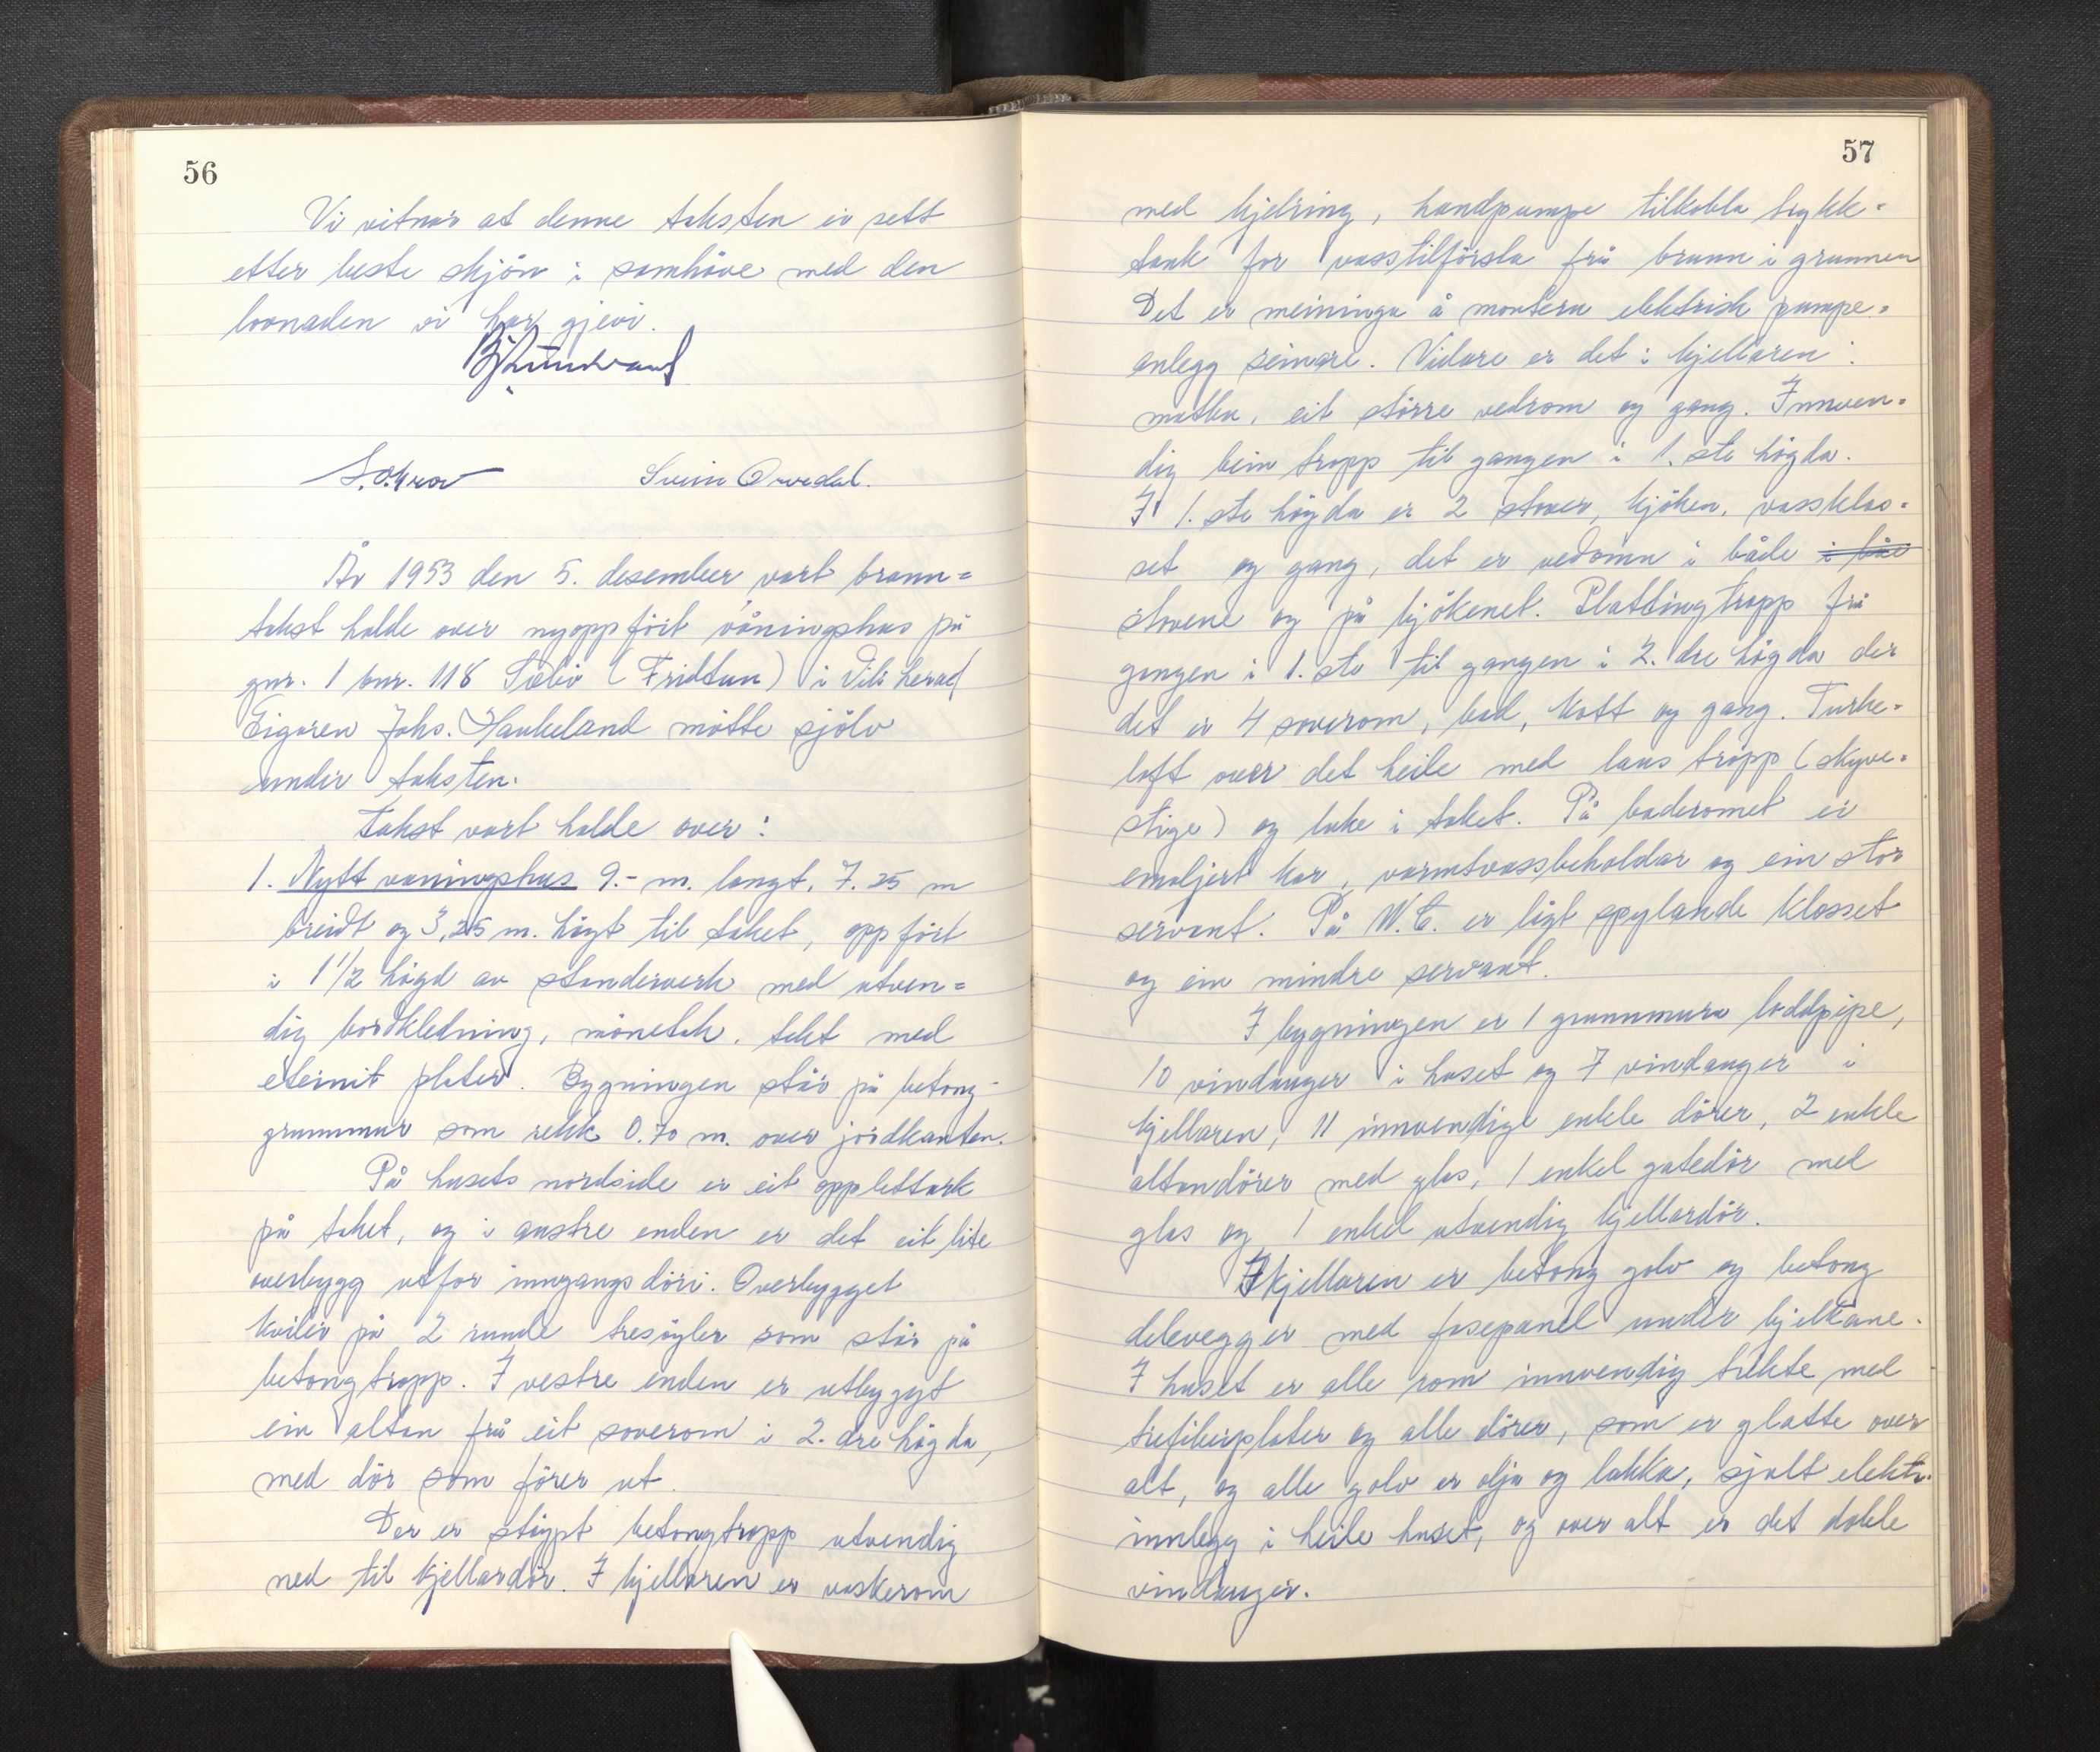 56
Vi vitnar at denne taksten er sett
etter beste skjön i samhöve med den
lovnaden vi har gjevi.
Svein Orvedal.
År 1953 den 5. desember vart brann=
takst halde over nyoppfört våningshus på
gnr. 1 bnr. 118 (Fridtun) i Vik herad
Eigaren Johs. Haukeland mötte sjölv
under taksten.
Takst vart halde over:
1. Nytt vaningshus 9.- m. langt, 7.25 m
breidt og 3,25 m. högt til taket, oppfört
i 1 1/2 högd av standerverk med utven=
dig bordkledning, mönetak, tekt med
eternit plater. Bygningen står på betong-
grunnmur som rekk 0.70 m. over jordkanten.
På husets nordside er eit opplettark
på taket, og i austre enden er det eit lite
overbygg utfor inngangsdöri. Overbygget
kviler på 2 runde tresöyler som står på
betongtropp. I vestre enden er utbygyt
ein altan frå eit soverom i 2. dre högda,
med dör som förer ut.
Der er stöypt betongtropp utvendig
ned til kjellardör. I kjellaren er vaskerom
57
med kjelring, handpumpe tilkobla trykk-
tank for vasstilförsla frå brunn i grunnen
Det er meininga å montera elektrisk pumpe-
anlegg seinare. Vidare er det i kjellaren:
matbu, eit större vedrom og gang. Innven-
dig bein tropp til gangen i 1. ste högda.
I 1. ste högda er 2 stover, kjöken, vassklos-
set og gang, det er vedomn i både i båe
stovene og på kjökenet. Platting tropp frå
gangen i 1. ste til gangen i 2. dre högda der
det er 4 soverom, bad, kott og gang. Turke-
loft over det heile med laus tropp (skyve-
stige) og luke i taket. På baderomet er
emaljert kar, varmtvassbeholdar og ein stor
servant. På W.C. er ligt spylande klosset
og ein mindre servant.
I bygningen er 1 grunnmura loddpipe,
10 vindauger i huset og 7 vindauger i
kjellaren, 11 innvendige enkle dörer, 2 enkle
altandörer med glas, 1 enkel gatedör med
glas og 1 enkel utvendig kjellardör.
I kjellaren er betong golv og betong
delevegger med fasepanel under bjelkane.
I huset er alle rom innvendig trekte med
trefiberplater og alle dörer, som er glatte over
alt, og alle golv er olja og lakka, sjult elektr.
innlegg i heile huset, og over alt er det doble
vindauger.